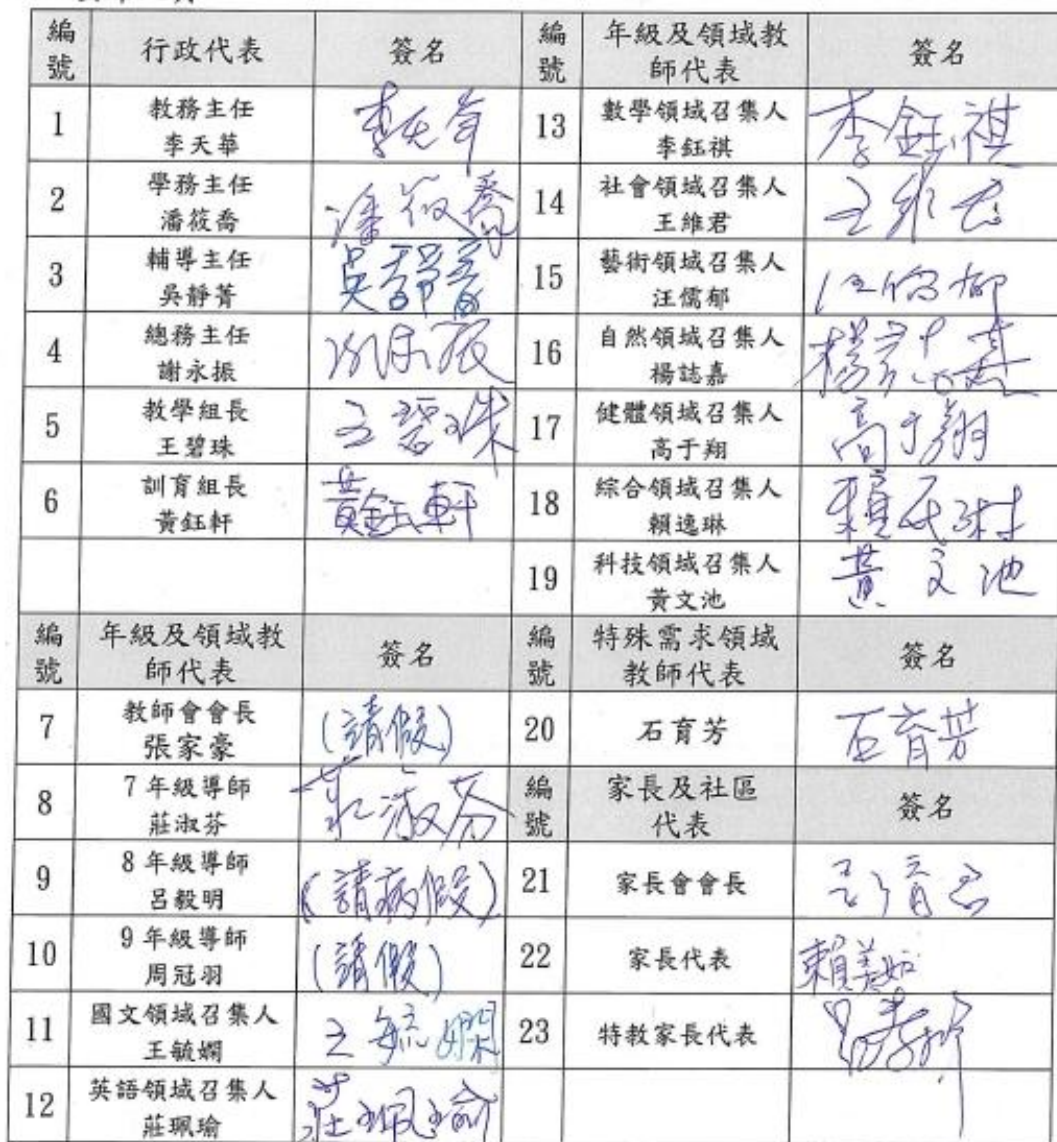 編號 行政代表 簽名 編號 年級及領域教師代表 簽名
1 教務主任 李天華 李天華 13 數學領域召集人 李鈺祺 李鈺祺
2 學務主任 潘筱喬 潘筱喬 14 社會領域召集人 王維君 王維君
3 輔導主任 吳靜菁 吳靜菁 15 藝術領域召集人 汪儒郁 汪儒郁
4 總務主任 謝永振 謝永振 16 自然領域召集人 楊誌嘉 楊誌嘉
5 教學組長 王碧珠 王碧珠 17 健體領域召集人 高于翔 高于翔
6 訓育組長 黃鈺軒 黃鈺軒 18 綜合領域召集人 賴逸琳 賴逸琳
19 科技領域召集人 黃文池 黃文池
編號 年級及領域教師代表 簽名 編號 特殊需求領域教師代表 簽名
7 教師會會長 張家豪 (請假) 20 石育芳 石育芳
8 7年級導師 莊淑芬 莊淑芬 編號 家長及社區代表 簽名
9 8年級導師 呂毅明 (請病假) 21 家長會會長
10 9年級導師 周冠羽 (請假) 22 家長代表 賴美如
11 國文領域召集人 王毓嫻 王毓嫻 23 特教家長代表
12 英語領域召集人 莊珮瑜 莊珮瑜